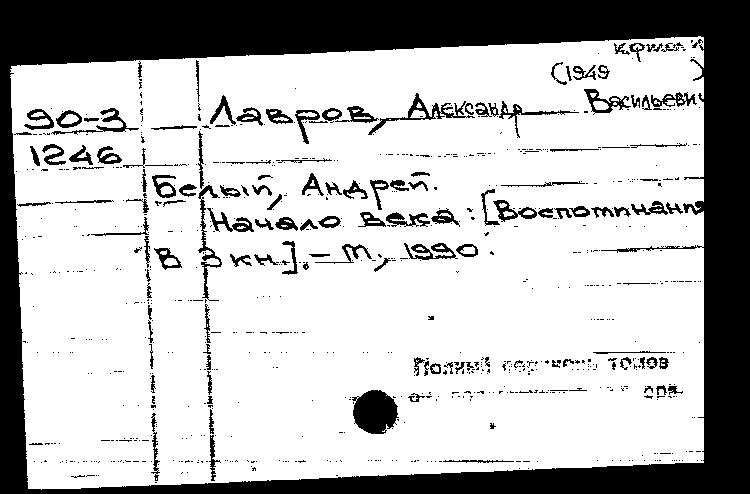 (1949 )
90-3 Лавров, Александр Васильевич
1246
Белый, Андрей.
Начало века : [Воспоминания
В 3 кн.]. – М., 1990.
Полный перечень томов